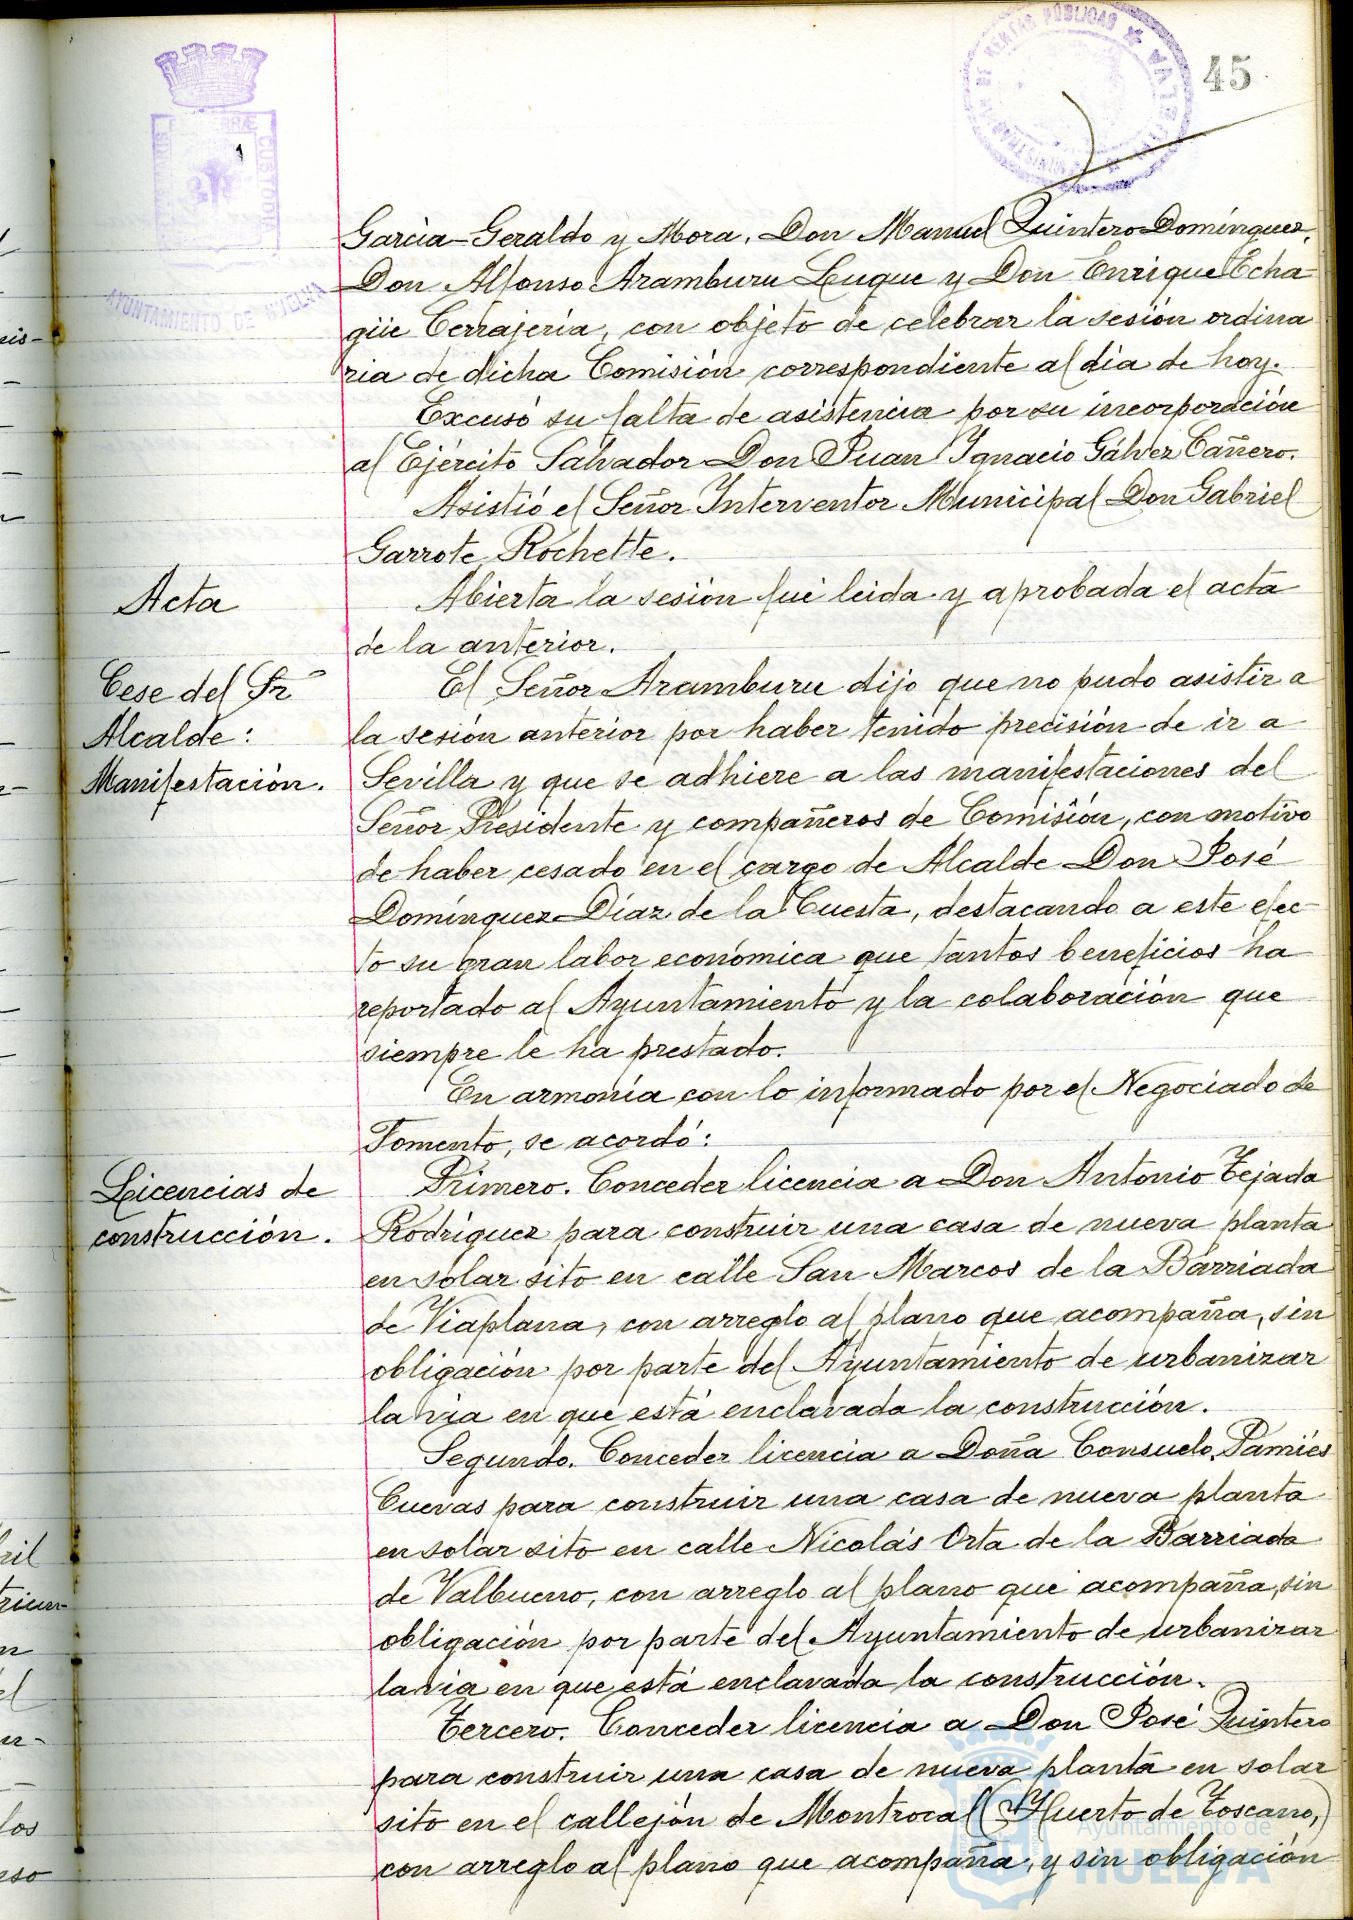 45
García-Geraldo y Mora, Don Manuel Quintero Domínguez,
Don Alfonso Aramburu Luque y Don Enrique Echa
güe Cerrajería, con objeto de celebrar la sesión ordina
ria de dicha Comisión correspondiente al día de hoy.
Excusó su falta de asistencia por su incorporación
al Ejército Salvador Don Juan Ignacio Gálvez Cañero.
Asistió el Señor Interventor Municipal Don Gabriel
Garrote Rochette.
Acta
Abierta la sesión fué leida y aprobada el acta
de la anterior.
Cese del Sr
Alcalde:
Manifestación.
El Señor Aramburu dijo que no pudo asistir a
la sesión anterior por haber tenido precisión de ir a
Sevilla y que se adhiere a las manifestaciones del
Señor Presidente y compañeros de Comisión, con motivo
de haber cesado en el cargo de Alcalde Don José
Domínguez Díaz de la Cuesta, destacando a este efec-
to su gran labor económica que tantos beneficios ha
reportado al Ayuntamiento y la colaboración que
siempre le ha prestado.
En armonía con lo informado por el Negociado de
Fomento, se acordó:
Licencias de
construcción.
Primero. Conceder licencia a Don Antonio Tejada
Rodríguez para construir una casa de nueva planta
en solar sito en calle San Marcos de la Barriada
de Viaplana, con arreglo al plano que acompaña, sin
obligación por parte del Ayuntamiento de urbanizar
la via en que está enclavada la construcción.
Segundo. Conceder licencia a Doña Consuelo Pamiés
Cuevas para construir una casa de nueva planta
en solar sito en calle Nicolás Orta de la Barriada
de Valbueno, con arreglo al plano que acompaña, sin
obligación por parte del Ayuntamiento de urbanizar
la via en que está enclavada la construcción.
Tercero. Conceder licencia a Don José Quintero
para construir una casa de nueva planta en solar
sito en el callejón de Montrocal (Huerto de Toscano,)
con arreglo al plano que acompaña, y sin obligación
AYUNTAMIENTO DE HUELVA
CUSTODIA
Ayuntamiento de
HUELVA